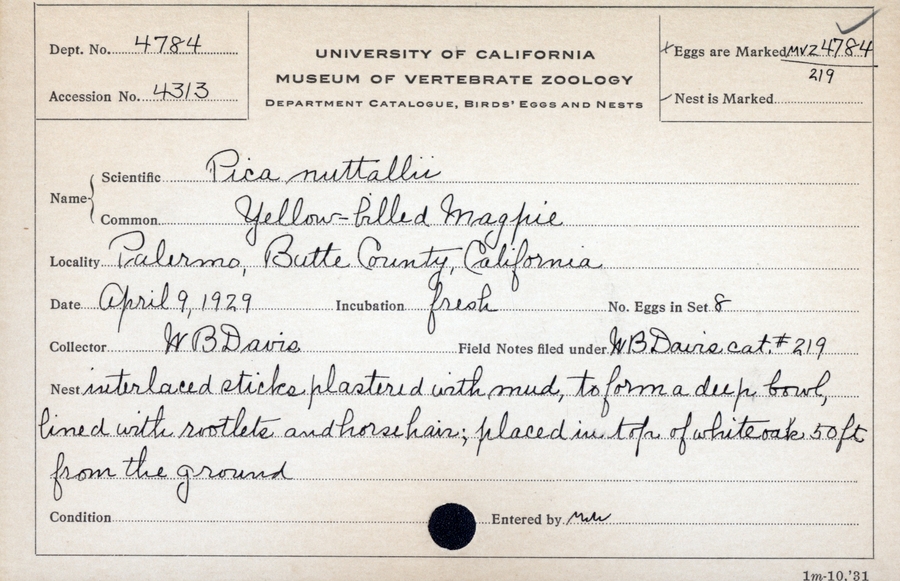 Dept. No. 4784
Accession No. 4313
UNIVERSITY OF CALIFORNIA
MUSEUM OF VERTEBRATE ZOOLOGY
DEPARTMENT CATALOGUE, BIRDS' EGGS AND NESTS
Eggs are Marked MVZ 4784
219
Nest is Marked
Name
Scientific Pica nuttallii
Common Yellow-billed Magpie
Locality Palermo, Butte County, California
Date April 9, 1929 Incubation fresh No. Eggs in Set 8
Collector W B Davis Field Notes filed under W B Davis cat. # 219
Nest interlaced sticks plastered with mud, to form a deep bowl,
lined with rootlets and horsehair; placed in top of white oak 50 ft
from the ground
Condition Entered by
1m-10,'31